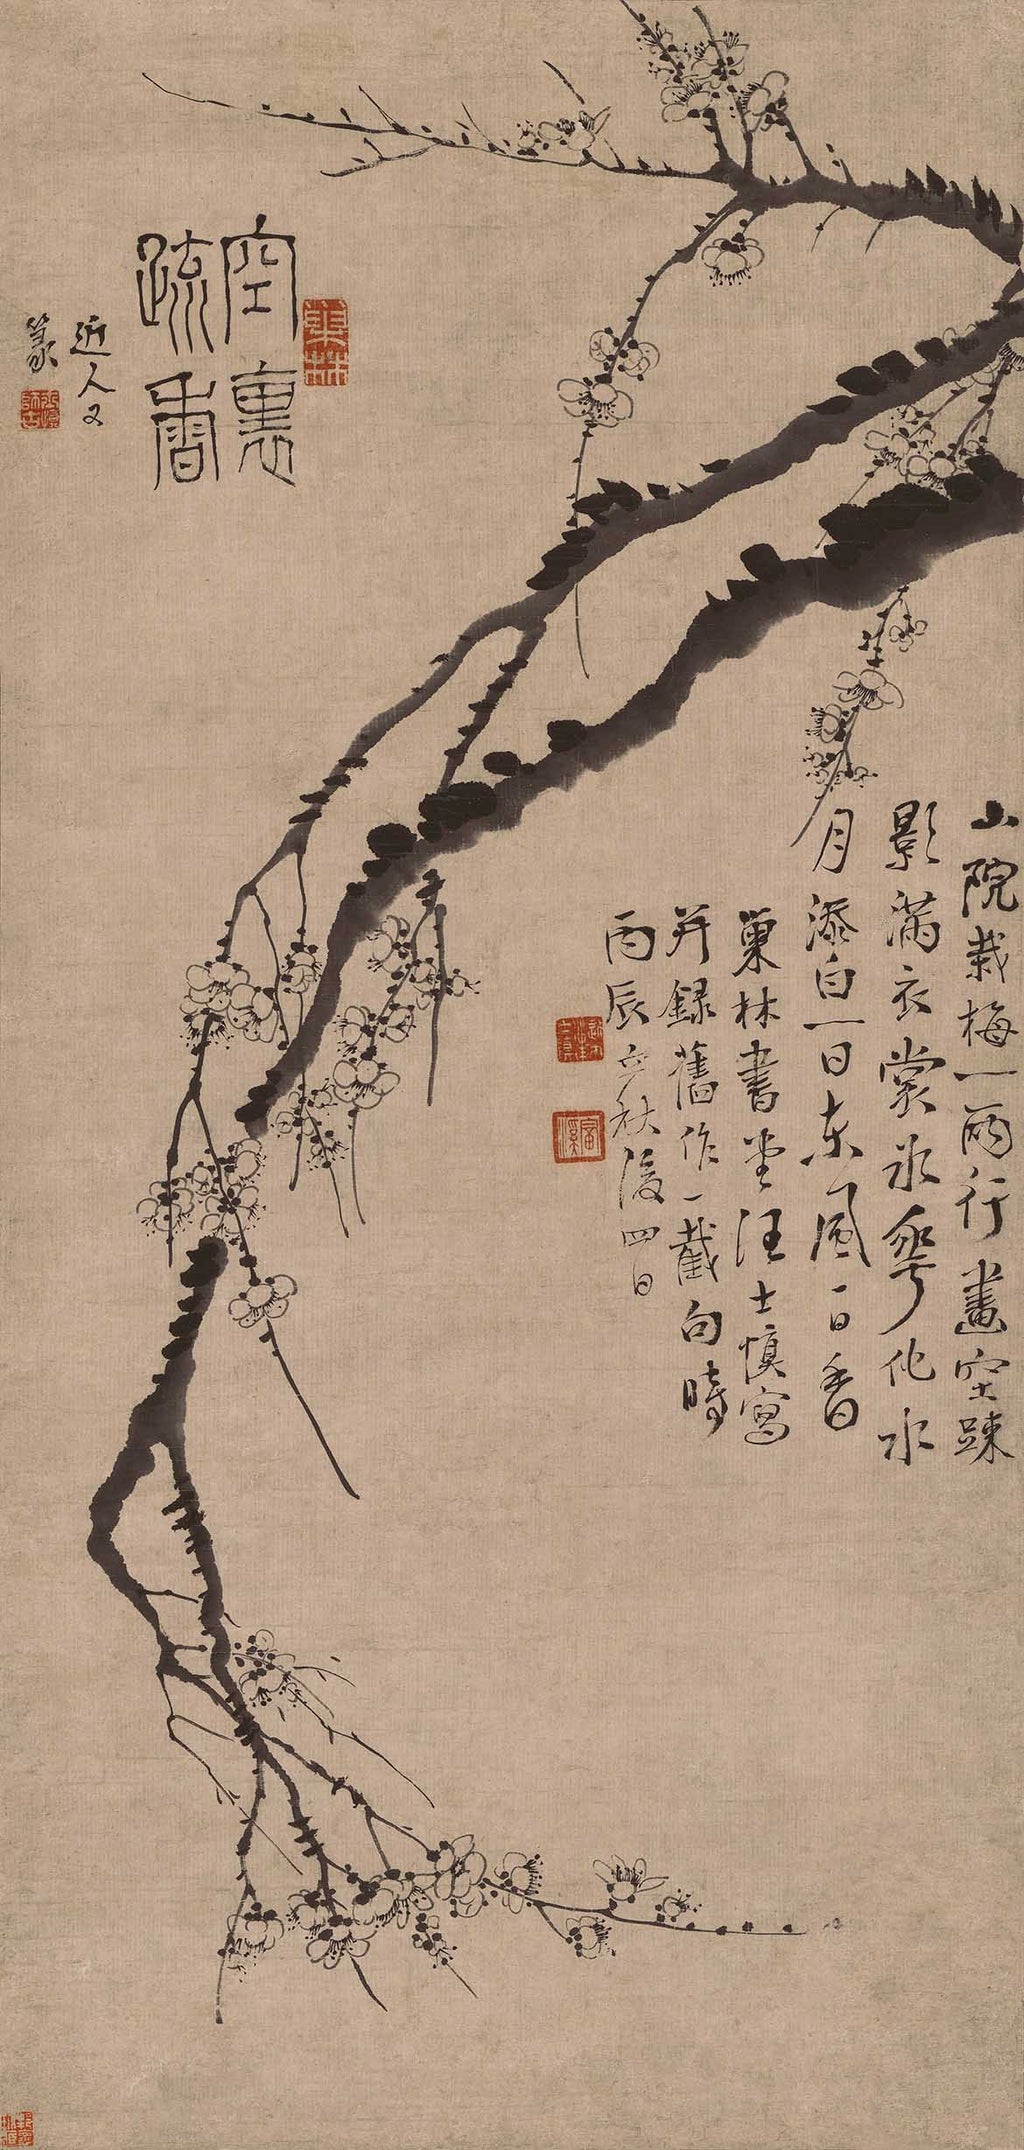 空裏
疏香
近人又
篆
巢林
小院栽梅一兩行畫空疎
影滿衣裳氷華化水
月添白一日東風一日香
巢林書堂汪士慎寫
并録舊作一截句時
丙辰立秋後四日